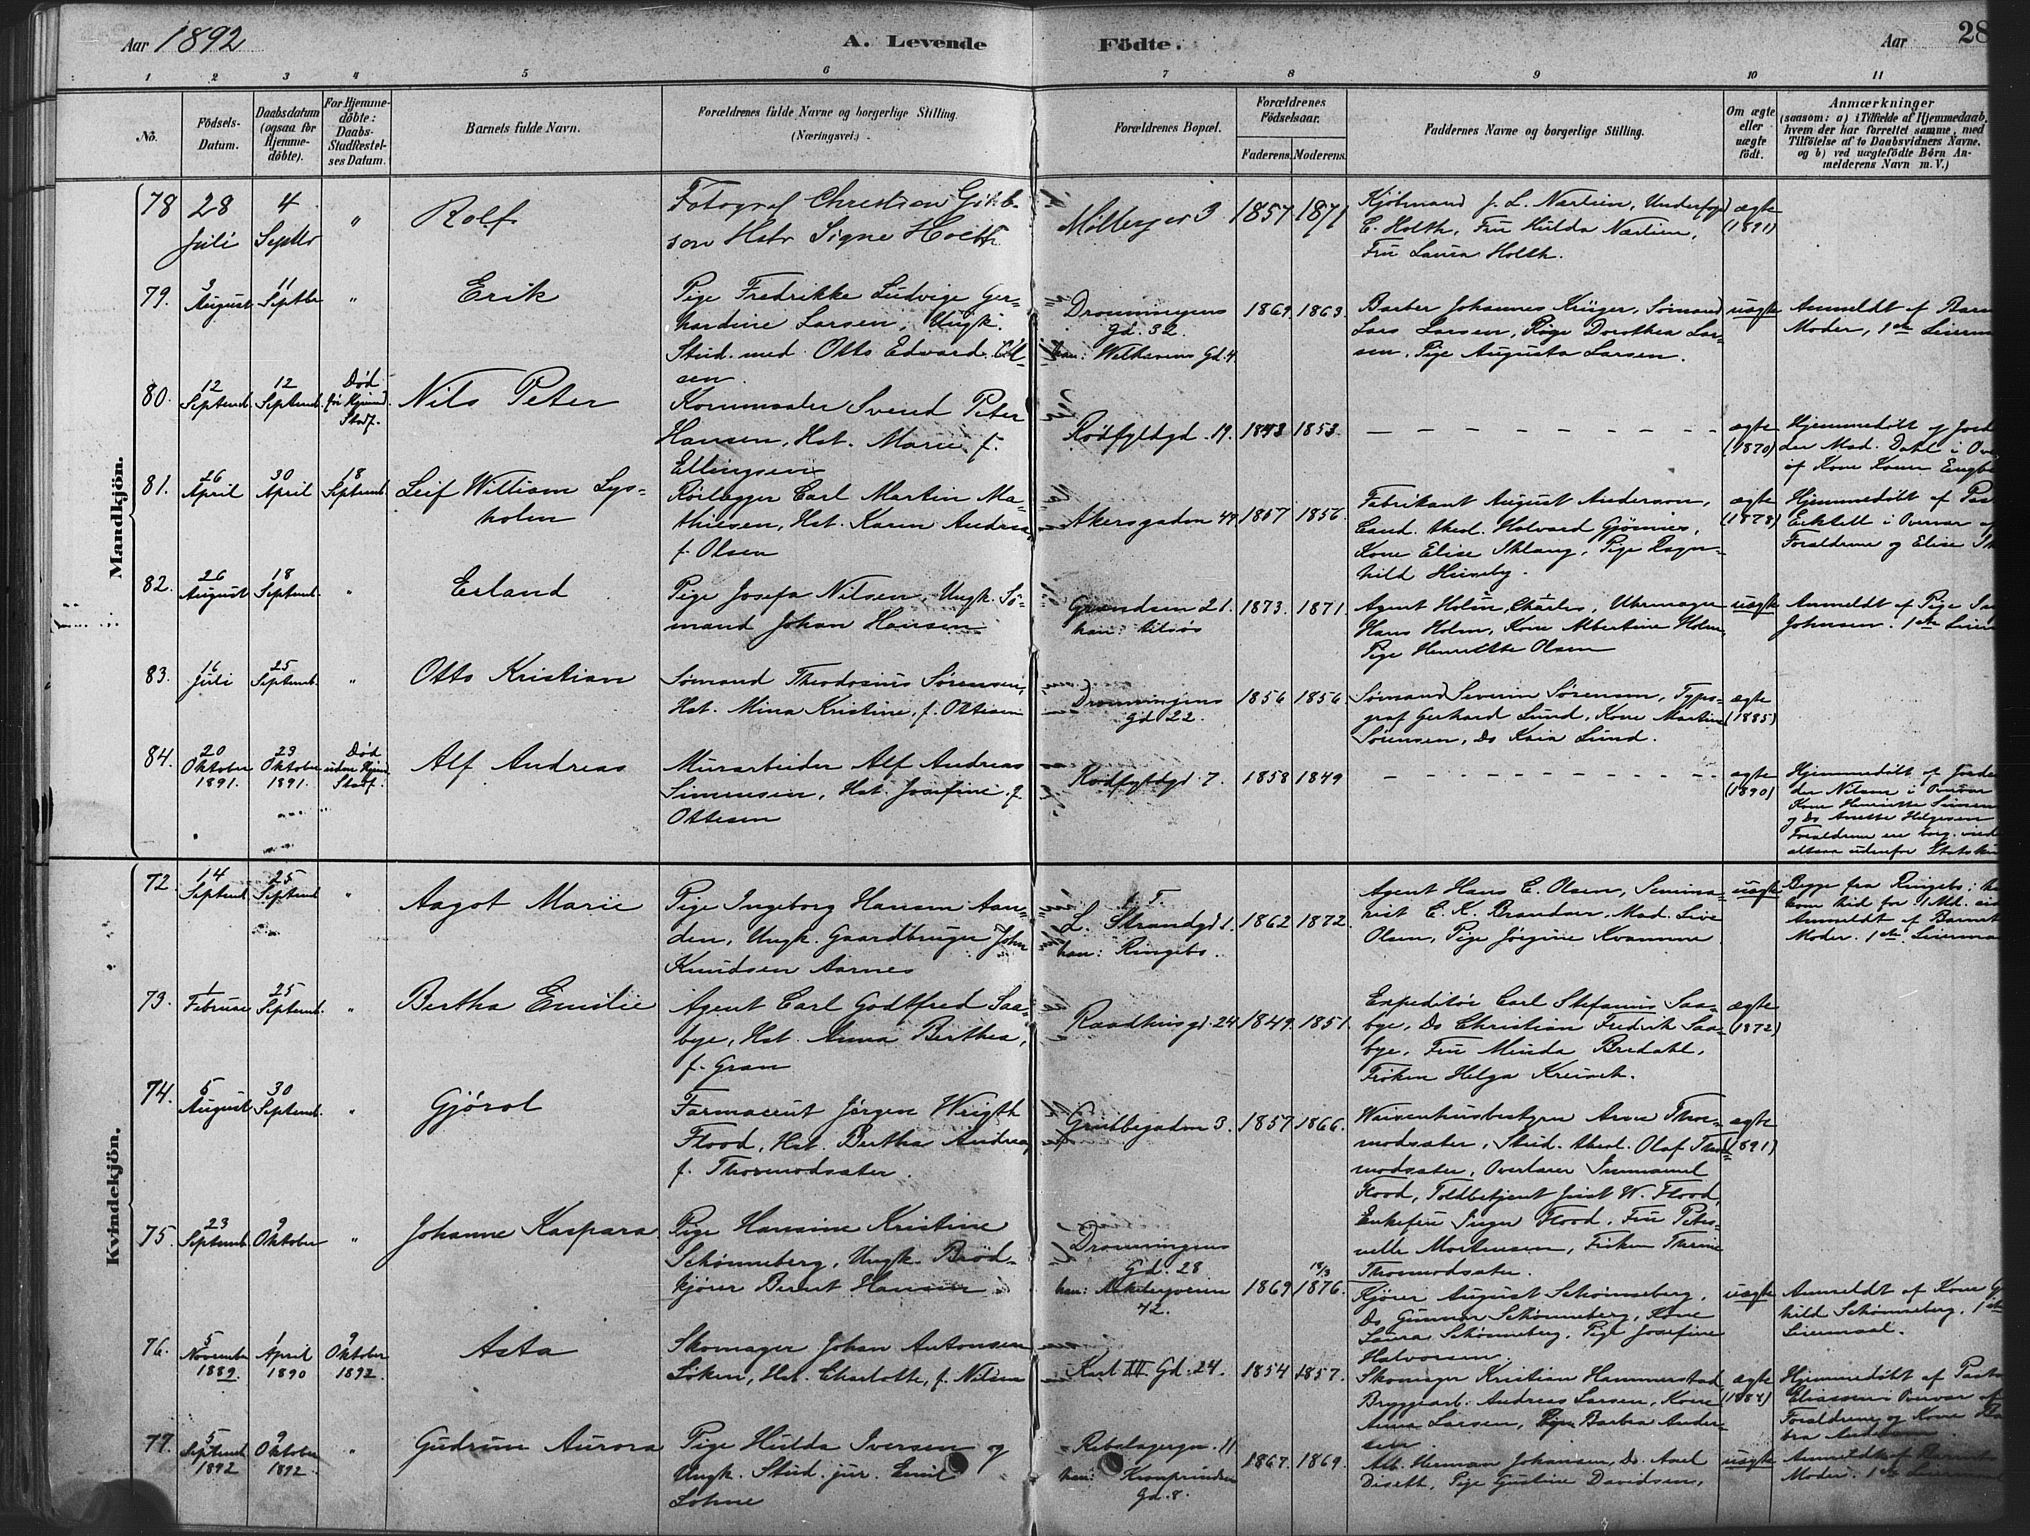 Aar 1892
A. Levende Födte.
Aar
28
1 2 3 4 5 6 7 8 9 10 11
No.
Födsels-Datum.
Daabsdatum (ogsaa for Hjemmedöbte).
For Hjemmedöbte: Daabs-Stadfestelses Datum.
Barnets fulde Navn.
Forældrenes fulde Navne og borgerlige Stilling. (Næringsvei.)
Forældrenes Bopæl.
Forældrenes Födselsaar.
Faderens. Moderens.
Faddernes Navne og borgerlige Stilling.
Om ægte eller uægte født.
Anmærkninger
(saasom: a) i Tilfælde af Hjemmedaab,
hvem der har forrettet samme, med
Tilföielse af to Daabsvidners Navne,
og b) ved uægtefödte Börn An-
melderens Navn m. V.)
Mandkjön.
78 28 Juli 4 Septbr " Rolf
Fotograf Christian
son Hstr Signe Holth
3 1857 1871
Kjöbmand J. L. Nærtien, Underfogd
C. Holth, Fru Hulda Næstien,
Fru Laura Holth.
ægte (1891)
79. 3 August 11 Septbr " Erik
Pige Fredrikke Ludvige Ger-
hardine Larsen, Ungk.
Stud. med. Otto Edvard
sen.
Dronningens
Gd. 32
han: Welhavens Gd. 4
1869. 1863.
Barber Johannes Krüger, Sømand
Lars Larsen, Pige Dorothea Lar-
sen, Pige Augusta Larsen.
uægte
Anmeldt af Barn
Moder, 1ste Leierm
80. 12 Septemb. 12 Septemb. Död før Kjend. Stadf. Nils Peter
Kornmaaler Svend Peter
Hansen, Hst. Marie f.
Ellingsen
Rødfyldgd. 19. 1843 1853.
ægte (1870)
Hjemmedøbt af Jord
der Mad. Dahl i Over
af Kone Engb
81. 26 April 30 April 18 Septemb. Leif William Lys-
holm
Rørlægger Carl Martin Ma-
thiesen, Hst. Karen Andrea,
f. Olsen
Akersgaden 49 1857 1856.
Fabrikant August Anderson,
Cand. theol. Halvard Gjønnes,
Kone Elise Pige Ragn-
hild Huseby.
ægte (1878)
Hjemmedøbt af Past
i Overvær af
Forældrene og Elise
82. 26 August 18 Septemb. " Erland
Pige Josefa Nilsen, Ungk. Sø-
mand Johan Hansen
Grændsen 21.
han:
1873. 1871
Agent Holm, Charles, Uhrmager
Hans Holm, Kone Albertine Holm,
Pige Henriette Olsen
uægte
Anmeldt af Pige
Johnsen. 1ste Leierm
83. 16 Juli 25 Septemb. " Otto Kristian
Sømand Theodosius Sørensen,
Hst. Mina Kristine, f. Ottesen
Dronningens
Gd 22.
1856 1856
Sømand Severin Sørensen, Typo-
graf Gerhard Lund, Kone Martine
Sørensen, Do Kaia Lund.
ægte (1885)
84. 20 Oktober 1891. 23 Oktober 1891. Død uden Stadf. Alf Andreas
Murarbeider Alf Andreas
Simensen, Hst. Josefine f.
Ottesen
Rødfyldgd 7. 1858 1849
ægte (1890)
Hjemmedøbt af Jorde
der Nilsen i Overvær
Kone Henriette Simen
og Do Anette Helgesen
Forældrene ere borg. viede
altsaa udenfor Statski
Kvindekjön.
72. 14 Septemb. 25 Septemb " Aagot Marie
Pige Ingeborg Hansen Aan-
den, Ungk. Gaardbruger John
Knudsen Aarnes
L. Strandgd 1.
han: Ringebo.
1862 1872.
Agent Hans C. Olsen, Semina-
rist C. K. Brandser, Mad. Live
Olsen, Pige Jørgine Kvamme
uægte
Begge fra Ringebo;
kom hid for 1 Md. sid
Anmeldt af Barnet
Moder. 1ste Leierma
73. 1 Februar 25 Septemb. " Bertha Emilie
Agent Carl Godtfred Saa-
bye, Hst. Anna Berthea,
f. Gran
Raadhusgd. 24 1849. 1851.
Expeditör Carl Stefanus Saa-
bye, Do Christian Fredrik Saa-
bye, Fru Minda Bredahl,
Frøken Helga
ægte (1872)
74. 5 August 30 Septemb. " Gjørol
Farmaceut Jørgen Wrigth
Flood, Hst. Bertha Andrea,
f. Thormodsater.
Grubbegaden 3. 1857 1866.
Waisenhusbestyrer Arne Thor-
modsater, Stud. theol. Olaf Thor-
modsater, Overlærer Immanuel
Flood, Toldbetjent Just W. Flood,
Enkefru Inger Flood, Fru Peter-
nelle Mortensen, Frøken Thrine
Thormodsater.
ægte (1891)
75. 23 Septemb. 9 Oktober " Johanne Kaspara
Pige Hansine Kristine
Schønneberg, Ungk. Brød-
kjører Bernt Hansen
Dronningens
Gd. 28
han:
42.
1869 18/3 1876.
Kjører August Schønneberg,
Do Gunnar Schønneberg, Kone
Laura Schønneberg, Pige Josefine
Halvorsen.
uægte
Anmeldt af Kone G
hild Schønneberg, 1ste
Leiermaal.
76. 5 November 1889 1 April 1890 9 Oktober 1892. Asta
Skomager Johan Antonsen
Løken, Hst. Charlotte, f. Nilsen
Karl XII Gd. 24. 1854 1857.
Skomager Kristian Hammerstad
Bryggearb. Andreas Larsen, Kone
Anna Larsen, Pige Barbra Ander-
sen.
ægte (1884)
Hjemmedøbt af Pasto
Eliassen i Overvær af
Forældrene og Kone Ba
bra Andersen.
77. 5 Septemb. 1892 9 Oktober 1892. " Gudrun Aurora
Pige Hulda Iversen og
Ungk. Stud. jur. Emil
Lohne
Rebslagergn. 11
han: Kronprindsens
Gd. 8.
1867. 1869.
Arb. Herman Johansen, Do. Axel
Diseth, Pige Gustine Davidsen,
uægte
Anmeldt af Barnets
Moder. 1ste Leiermaal